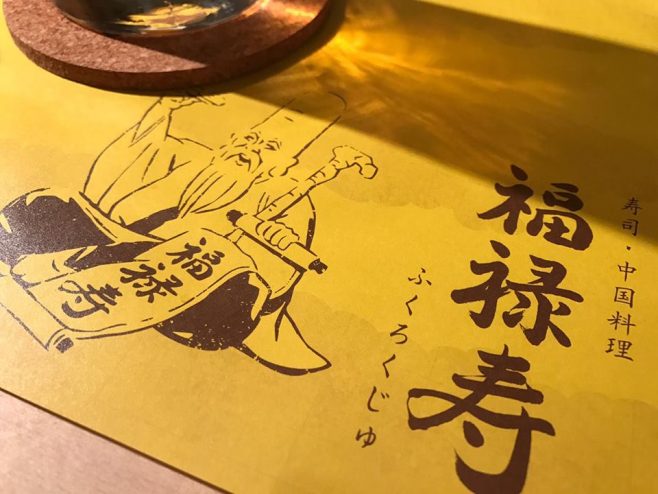 寿司・中国料理
福禄寿
ふくろくじゅ
福禄寿